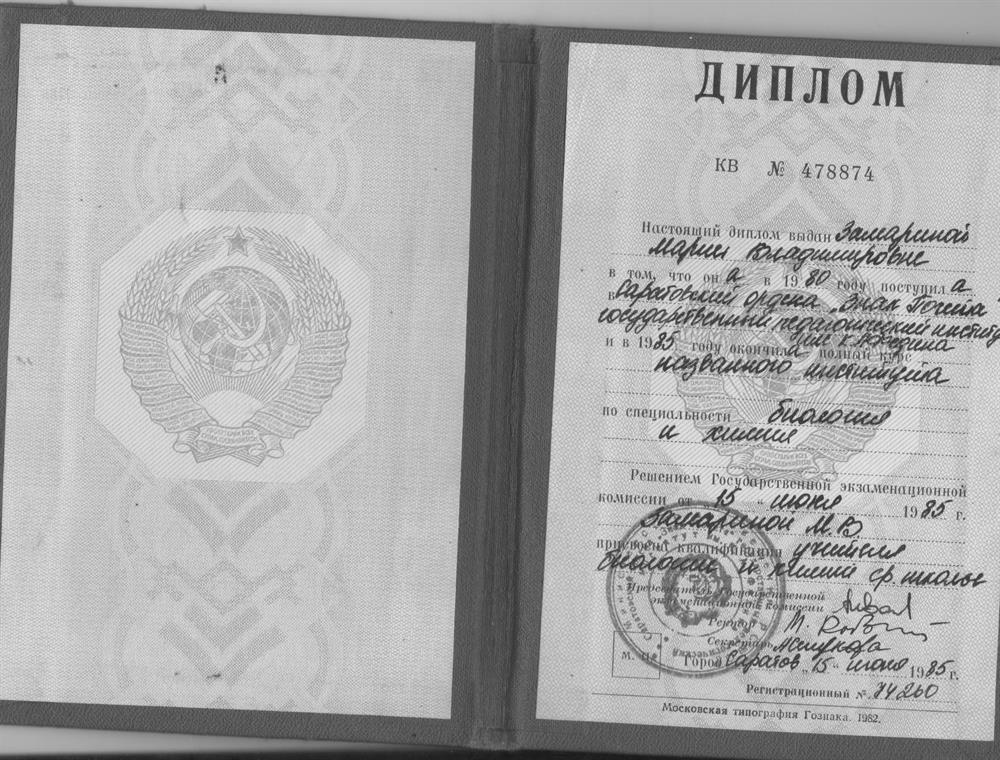 ДИПЛОМ
КВ № 478874
Настоящий диплом выдан Замариной
Марии Владимировне
в том, что она в 1980 году поступила
в Саратовский ордена „Знак Почета"
государственный педагогический институт
им. К. А. Федина
и в 1985 году окончила полный курс
названного института
по специальности биология
и химия
Решением Государственной экзаменационной
комиссии от 15 „ июня 1985 г.
Замариной М.В.
присвоена квалификация учителя
биологии и химии ср. школы
Председатель Государственной
экзаменационной комиссии
Ректор
Секретарь
М. П.
Город Саратов „15" июня 1985 г.
Регистрационный № 74260
Московская типография Гознака. 1982.